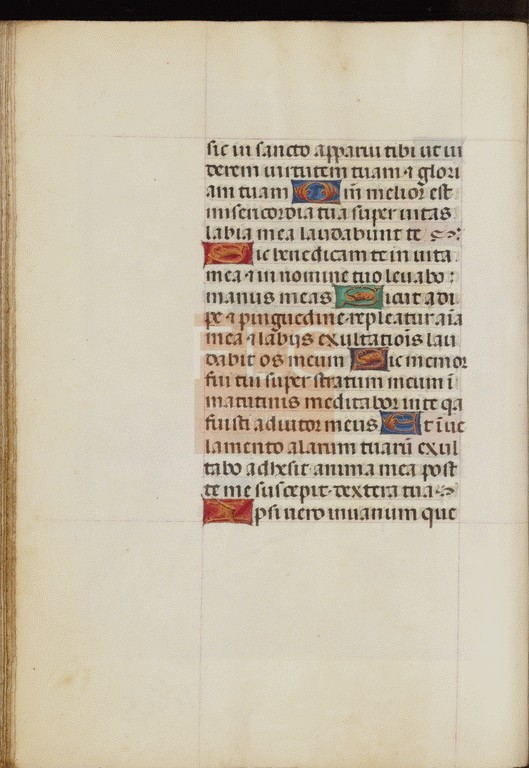 sic in sancto apparui tibi ut vi
derem virtutem tuam ⁊ glori
am tuam Qm̄ melior est
misericordia tua super vitas
labia mea laudabunt te
Sic benedicam te in vita
mea ⁊ in nomine tuo levabo :
manus meas Sicut adi
pe ⁊ pinguedine repleatur aīa
mea ⁊ labijs exultatiois̄ lau
dabit os meum Sic memor
fui tui super stratum meum ī
matutinis meditabor in te qa
fuisti adiutor meus Et ī ve
lamento alarum tuarū exul
tabo adhesit anima mea post
te me suscepit dextera tua
Ipsi vero in vanum que
FLG